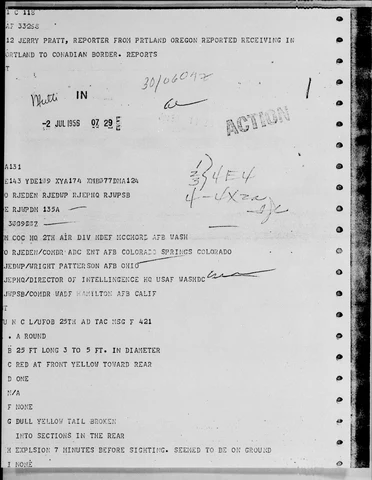 C 118
A7 33268
12 JERRY PRATT, REPORTER FROM PRTLAND OREGON REPORTED RECEIVING IN
ORTLAND TO CONADIAN BORDER. REPORTS
T
30/0609z
IN
ACTION
2 JUL 1956 07 29
A131
E143 YDE189 XYA174 XMB077DMA124
O RJEDEN RJEDWP RJEPHQ RJWPSB
E RJWPDM 135A
4E4
4-4X2a
M COC HQ 2TH AIR DIV MDEF MCCHORZ AFB WASH
O RJEDEN/COMBR ABC ENT AFB COLORADO SPRINGS COLORADO
JEDWP/WRIGHT PATTERSON AFB OHIO
JEPHQ/DIRECTOR OF INTELLINGENCE HQ USAF WASHDC
JWPSB/COMDR WADF HAMILTON AFB CALIF
T
U N C L/UFOB 25TH AD TAC MSG F 421
. A ROUND
B 25 FT LONG 3 TO 5 FT. IN DIAMETER
C RED AT FRONT YELLOW TOWARD REAR
D ONE
N/A
F NONE
G BULL YELLOW TAIL BROKEN
INTO SECTIONS IN THE REAR
H EXPLSION 7 MINUTES BEFORE SIGHTING. SEEMED TO BE ON GROUND
I NONE